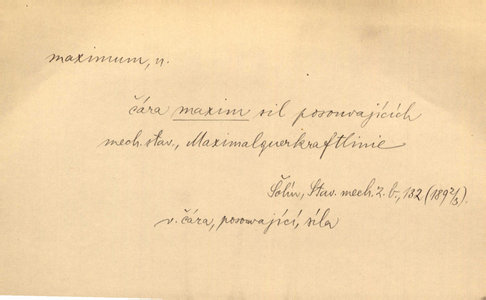 maximum, n.
čára maxim sil posouvajících
mech. stav., Maximalquerkraftlinie
Šolín, Stav. mech. 2. b., 132 (1892/3).
v. čára, posouvající, síla